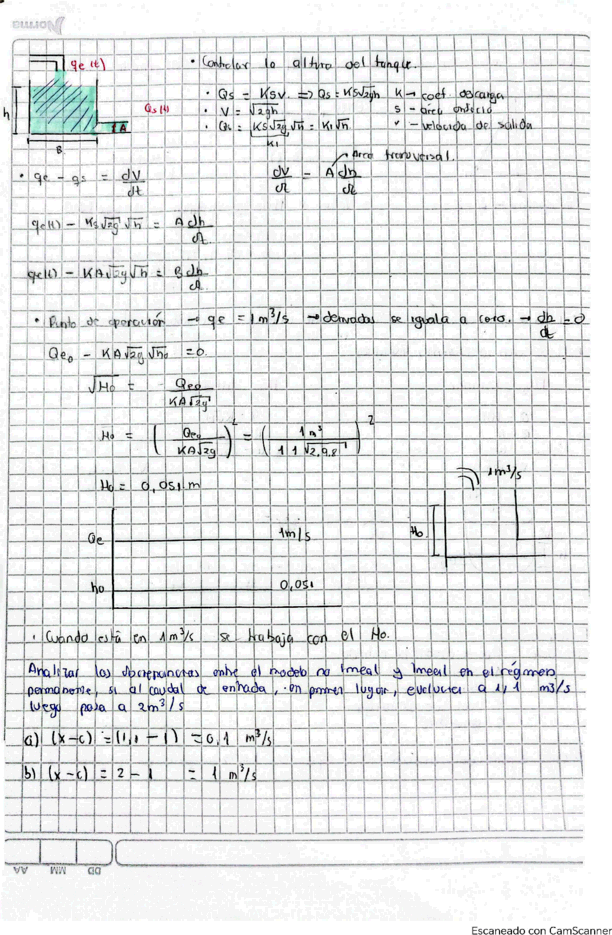 Norma
qe(t)
• Controlar la altura del tanque.
h
Qs(t)
A
B
• Qs = KSV. => Qs = KS√2gh K → coef descarga
• V = √2gh S - área orificio
• Qs = KS√2g √h = K1√h v - velocidad de salida
K1
Area transversal.
• qe - qs = dV/dt dV/dt = A dh/dt
qe(t) - KS√2g √h = A dh/dt
qe(t) - KA√2g √h = B dh/dt
• Punto de operación → qe = 1 m³/s → derivadas se iguala a cero. → dh/dt = 0
Qe0 - KA√2g √h0 = 0.
√H0 = Qe0 / KA√2g
H0 = (Qe0 / KA√2g)² = (1 m³ / 1 1 √2,9,8)²
H0 = 0,051 m
1m³/s
H0
Qe 1m/s
h0 0,051
• Cuando está en 1 m³/s se trabaja con el H0.
Analizar las discrepancias entre el modelo no lineal y lineal en el régimen
permanente, si al caudal de entrada, en primer lugar, evoluciona a 1,1 m3/s
luego pasa a 2m³/s
a) (x-c) = (1,1 - 1) = 0,1 m³/s
b) (x-c) = 2 - 1 = 1 m³/s
AA MM DD
Escaneado con CamScanner